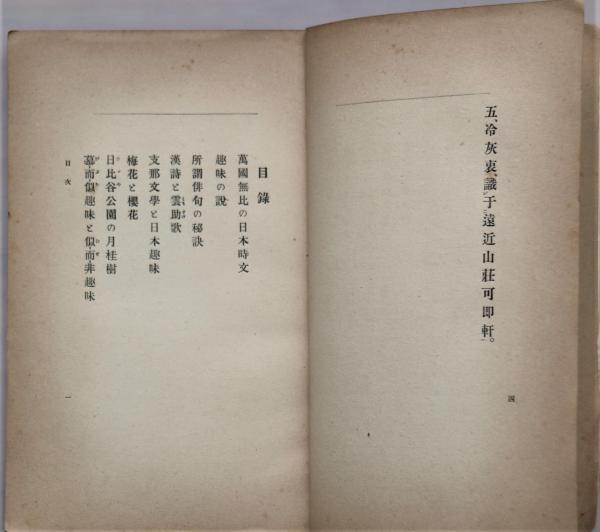 五、冷灰衷識于遠近山莊可即軒。
四
目錄
萬國無比の日本時文
趣味の說
所謂俳句の秘訣
漢詩と雲助歌
支那文學と日本趣味
梅花と櫻花
日比谷公園の月桂樹
墓而似趣味と似而非趣味
目次
一